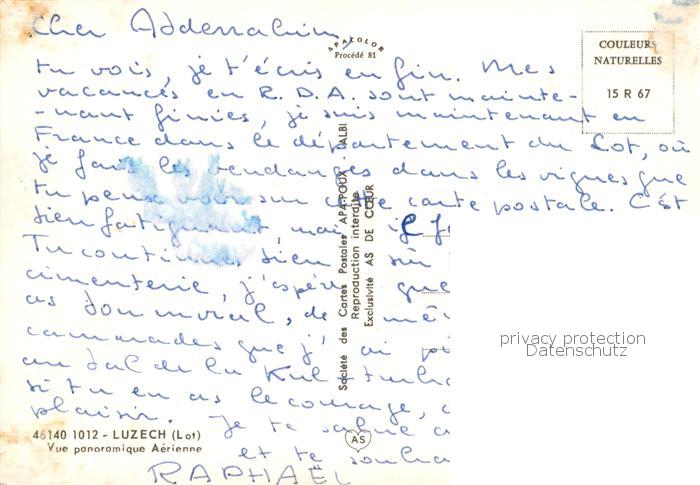 Cher Abderrahim
tu vois, je t'écris enfin. Mes
vacances en R.D.A. sont mainte-
-nant finies, je suis maintenant en
France dans le département du Lot, où
je fais les vendanges dans les vignes que
tu peux voir sur cette carte postale. C'est
bien fatiguant mais il f
Tu continues bien sûr
cimenterie, j'espère que
as bon moral, de mêm
camarades que j'ai
au bal de la Kul
si tu en as le courage,
plaisir. Je te salue
et te souha
RAPHAËL
APACOLOR
Procédé 81
COULEURS
NATURELLES
15 R 67
Société des Cartes Postales APA-POUX - ALBI
Reproduction interdite
Exclusivité AS DE CŒUR
privacy protection
Datenschutz
46140 1012 - LUZECH (Lot)
Vue panoramique Aérienne
AS